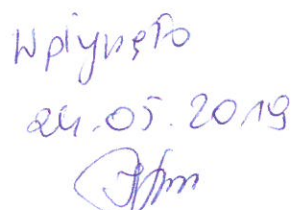 Wpłynęło
24.05.2019